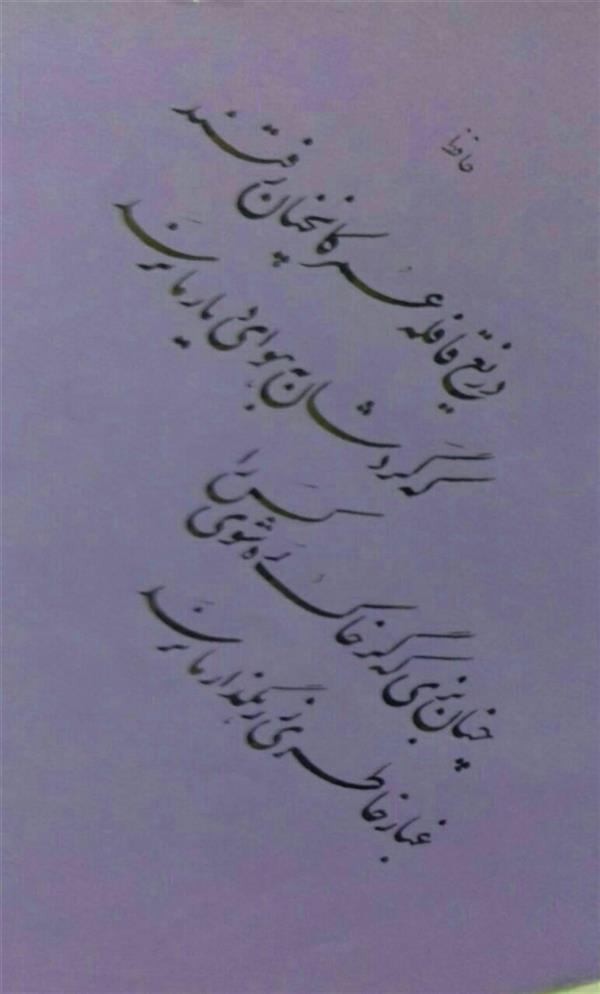 حافظ
دریغ قافله عُمر کانچنان رفتند
که گَردشان به هوای دیار ما نرسَد
چنان بزی که گر خاکِ رَه شوی کَس را
غبار خاطری از رهگذار ما نرسَد